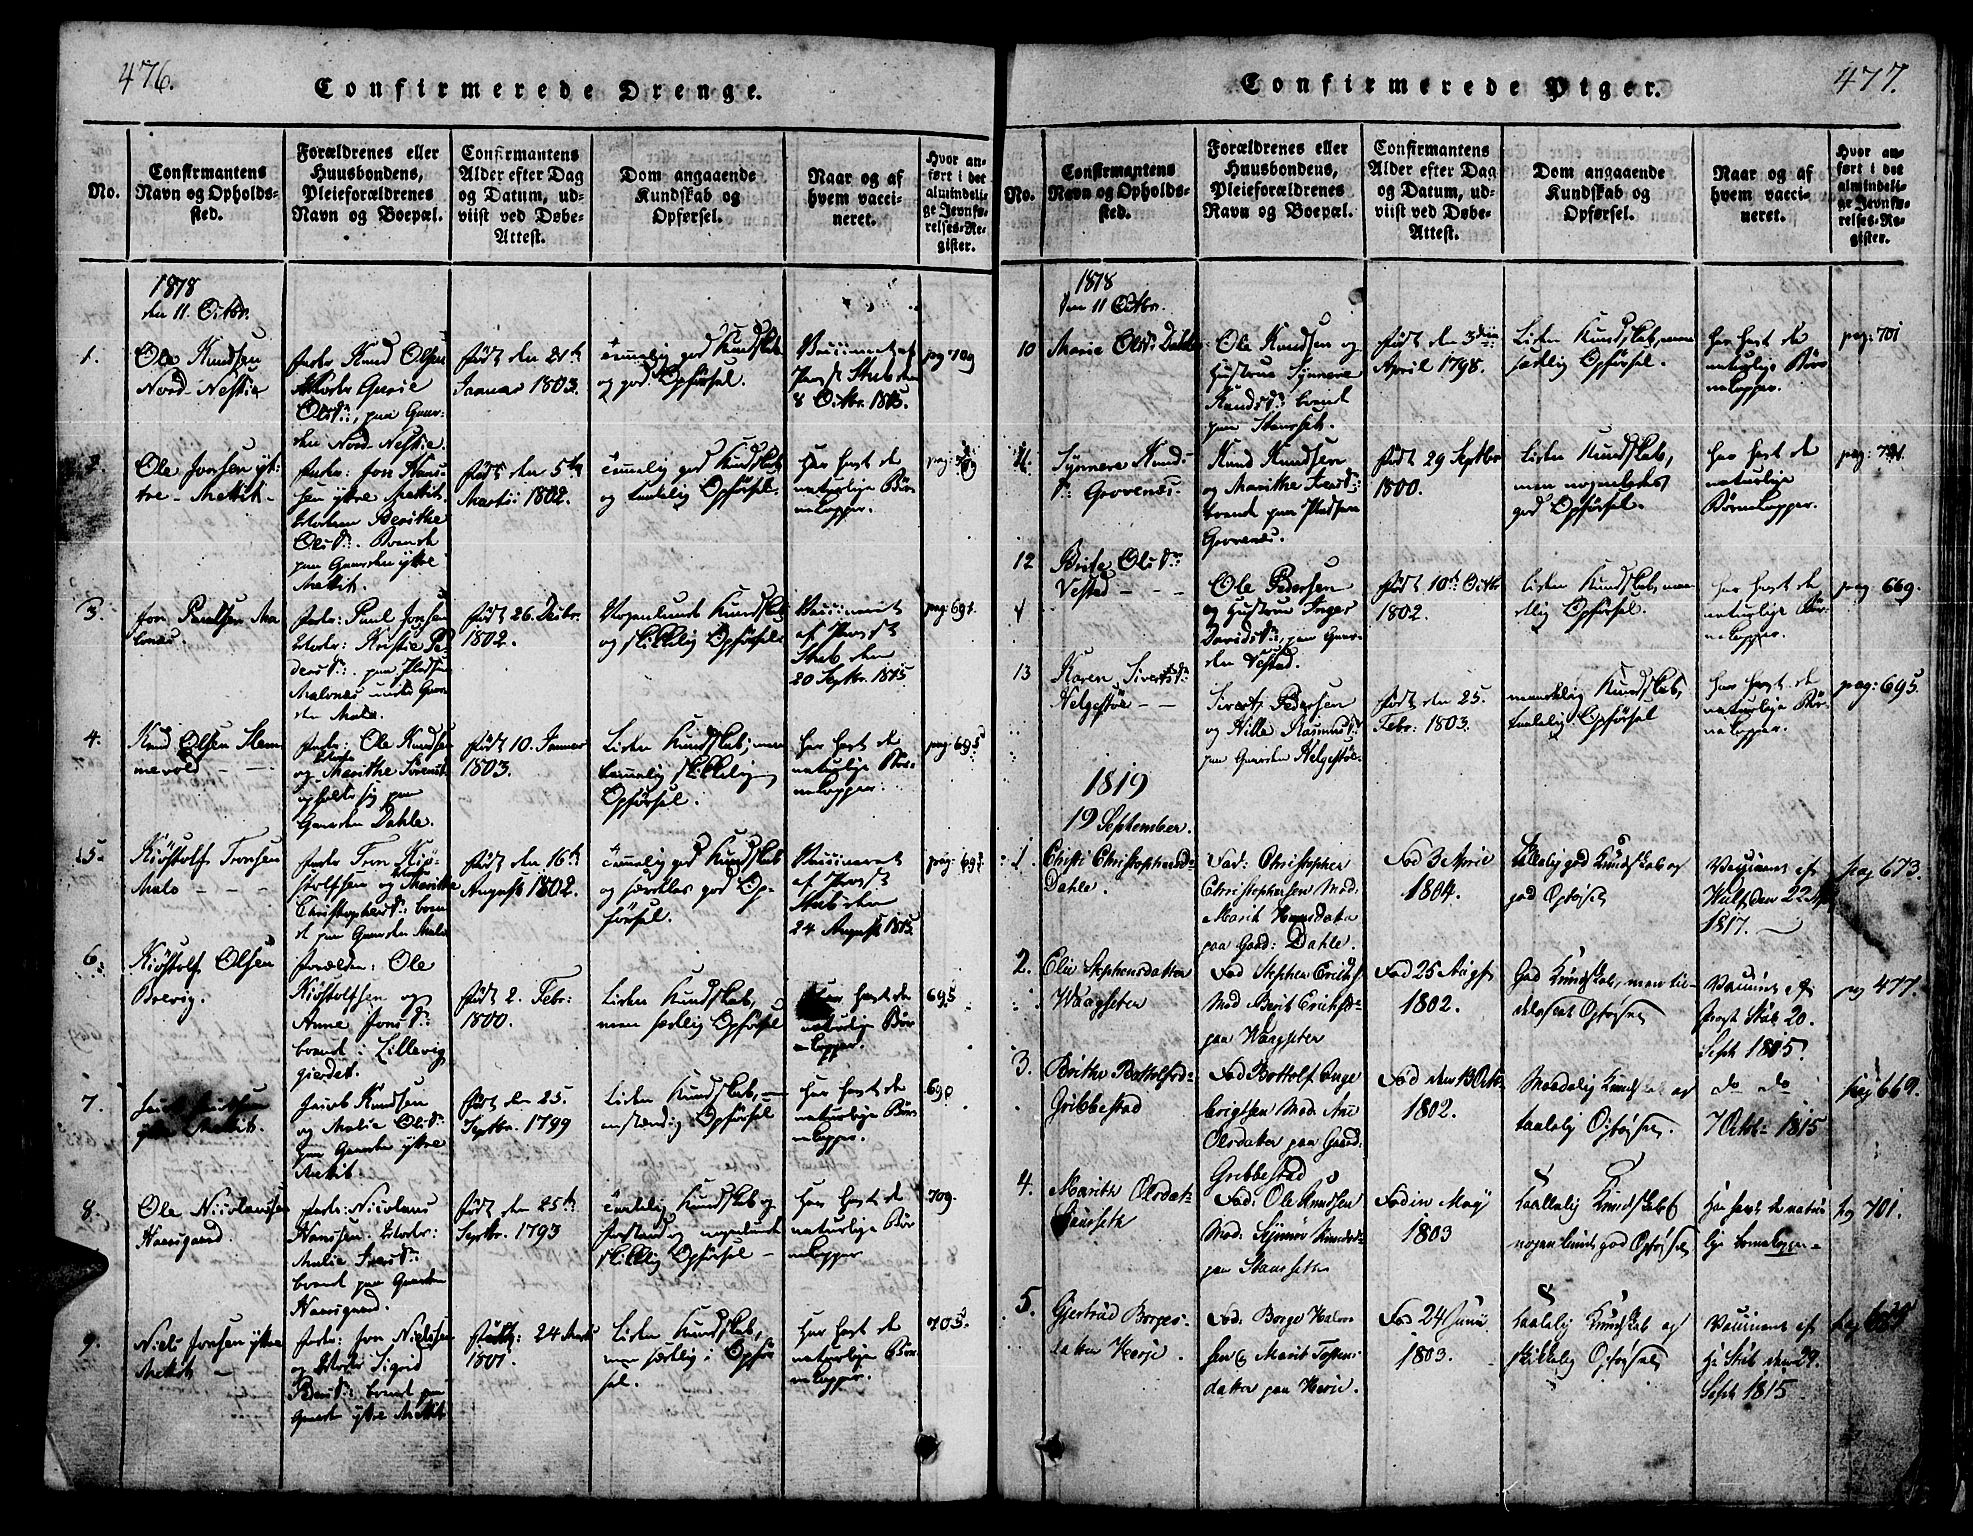 476.
Confirmerede Drenge.
No.
Confirmantens
Navn og Opholds-
sted.
Forældrenes eller
Huusbondens,
Pleieforældrenes
Navn og Boepæl.
Confirmantens
Alder efter Dag
og Datum, ud-
viist ved Døbe-
Attest.
Dom angaaende
Kundskab og
Opførsel.
Naar og af
hvem vacci-
neret.
Hvor an-
ført i det
almindeli-
ge Jevnfø-
relses-Re-
gister.
1818
den 11. Octbr.
1.
Ole Knudsen
Nord-Nestie
Fader Knud Olsen
Moder Guroe
Olsd:, paa Gaar-
den Nord-Nestie.
Født den 21de
Januar 1803.
temmelig god Kundskab
og god Opførsel.
Vaccineret af
Præst Stub den
8 Octbr. 1815.
pag 709
2.
Ole Jonsen yt-
tre-Mettit
Fader: Jon
sen yttre Mettit,
Moder Berithe
Olsd: Boende
paa Gaarden yttre
Mettit.
Født den 5te
Marti: 1802.
temmelig god Kundskab
og taalelig Opførsel.
Har havt de
naturlige Bør-
nekopper.
pag: 709
3.
Jon Paulsen Ma-
lones.
Fader: Paul Jonsen
Moder: Kristie Pe-
dersd: paa Pladsen
Malones under Gaar-
den Malo.
Født 26. Decbr.
1802.
Nogenlunde Kundskab
og skikkelig Opførsel
Vaccineret
af Præst
Stub den
20 Septbr. 1815
pag: 691.
4.
Knud Olsen Hem-
mevold
Fader: Ole Knudsen
og Moder Marithe
opholder sig paa
Gaarden Dahle.
Født 10. Januar
1803.
Liden Kundskab, men
temmelig skikkelig
Opførsel.
Har havt de
naturlige Bør-
nekopper.
pag: 695
5.
Kiøstolf Tronsen
Malo
Fader Tron Kiø-
stolfsen og Moder Marithe
Christophersd: boen-
de paa Gaarden Malo
Født den 16de
August 1802.
temmelig god Kundskab
og særdeles god Op-
førsel.
Vaccineret
af Præst
Stub den
24 August 1815.
pag: 691
6.
Kiøstolf Olsen
Brevig.
Forældre: Ole
Kiøstolfsen og
Anne Jonsd:
boende i Lillevig
gierdet.
Født 2. Febr:
1800.
Liden Kundskab,
men sædelig Opførsel
Har havt de
naturlige Bør-
nekopper.
695
7.
yttre Mettit.
Jacob Knudsen
og Malie Olsd:
paa Gaarden yttre
Mettit.
Født den 25.
Septbr. 1799
Liden Kundskab,
anstændig Opførsel
Har havt de
naturlige Bør-
nekopper.
8.
Ole Nicolausen
Naasgaard.
Fader: Nicolaus
Hansen, Moder:
Malie
boende paa Gaarden
Naasgaard.
Født den 25de
Septbr. 1793
Kundskab og
Forstand og nogenlunde
skikkelig Opførsel
Har havt de
naturlige Bør-
nekopper
709.
9.
Niels Jonsen yttre
Mettit
Fader: Jon Nielsen
og Moder Sigrid
boende paa
Gaarden yttre Mettit
Født: 24
1801.
Liden Kundskab,
men sædelig i Opfør-
sel.
Har havt de
naturlige Bør-
nekopper.
705.
477.
Confirmerede Piger.
No.
Confirmantens
Navn og Opholds-
sted.
Forældrenes eller
Huusbondens,
Pleieforældrenes
Navn og Boepæl.
Confirmantens
Alder efter Dag
og Datum, ud-
viist ved Døbe-
Attest.
Dom angaaende
Kundskab og
Opførsel.
Naar og af
hvem vacci-
neret.
Hvor an-
ført i det
almindeli-
ge Jevnfø-
relses-Re-
gister.
1818
den 11 Octbr.
10
Marie Olsd: Dahle
Ole Knudsen og
Hustrue Synnere
Knudsd: boende
paa Staurseth.
Født den 3die
April 1798.
Liden Kundskab, men
sædelig Opførsel.
Har havt de
naturlige Bør-
nekopper.
pag: 701
11.
Synnere Knud-
sd: Grovenæs.
Knud Knudsen
og Marithe
boende paa Pladsen
Grovenæs.
Født 29 Septbr
1800.
Liden Kundskab,
men nogenledes
god Opførsel.
Har havt de
naturlige
Børnekopper.
12
Brite Olsd:
Vestad
Ole Pedersen
og Hustrue Inger
Davidsd: paa Gaar-
den Vestad.
Født 10de Octbr
1802.
Liden Kundskab, men
Opførsel.
Har havt de
naturlige Bør-
nekopper.
pag 669.
13
Karen Sivertsd:
Helgestøe
Sivert Pedersen
og Hille Rasmusd:
paa Gaarden Helgestøe
Født den 25.
Febr: 1803.
maadelig Kundskab,
taalelig Opførsel
Har havt de
naturlige Bør-
nekopper.
pag: 695.
1819
19 September.
1.
Christi Christophersd:
Dahle.
Fad: Christopher
Christophersen Mod:
Marit Hansdatter
paa Gaard: Dahle.
Fød 3 April
1804.
taalelig god Kundskab og
god Opførsel
Vaccineret af
Wulf den 22
1817.
pag 673.
2.
Eliu Stephensdatter
Waagseter
Fad Stephen Erichs:
Mod Berit Erichsd:
paa Waagseter
Fød 25 Augst
1802.
God Kundskab, men til-
Opførsel
Vaccineret af
Præst Stub 20.
Septb 1815.
pag 477.
3.
Brithe Bottolfsd:
Gribbestad
Fad Bottolf Inge-
brigtsen Mod: Ane
Olsdatter paa Gaard:
Gribbestad
Fød den 13 Octb:
1802.
Maadelig Kundskab og
taalelig Opførsel.
do do
7 Octb: 1815
pag 669.
4.
Marith Olsdat:
Staurseth
Fad: Ole Knudsen
Mod: Synnøv Knudsd:
paa Staurseth
Fød in Maj
1803
taalelig Kundskab
nogenlunde god Opførsel
Har havt de natur-
lige børnekopper
pag 701.
5.
Giertrud Borges-
datter Herje
Fad: Borge Halvor-
sen og Marit Tosten-
datter paa Herie.
Fød 24 Juni
1803.
taalelig Kundskab og
skikkelig Opførsel
Vaccineret af
Hr Stub den 29.
Septb 1815